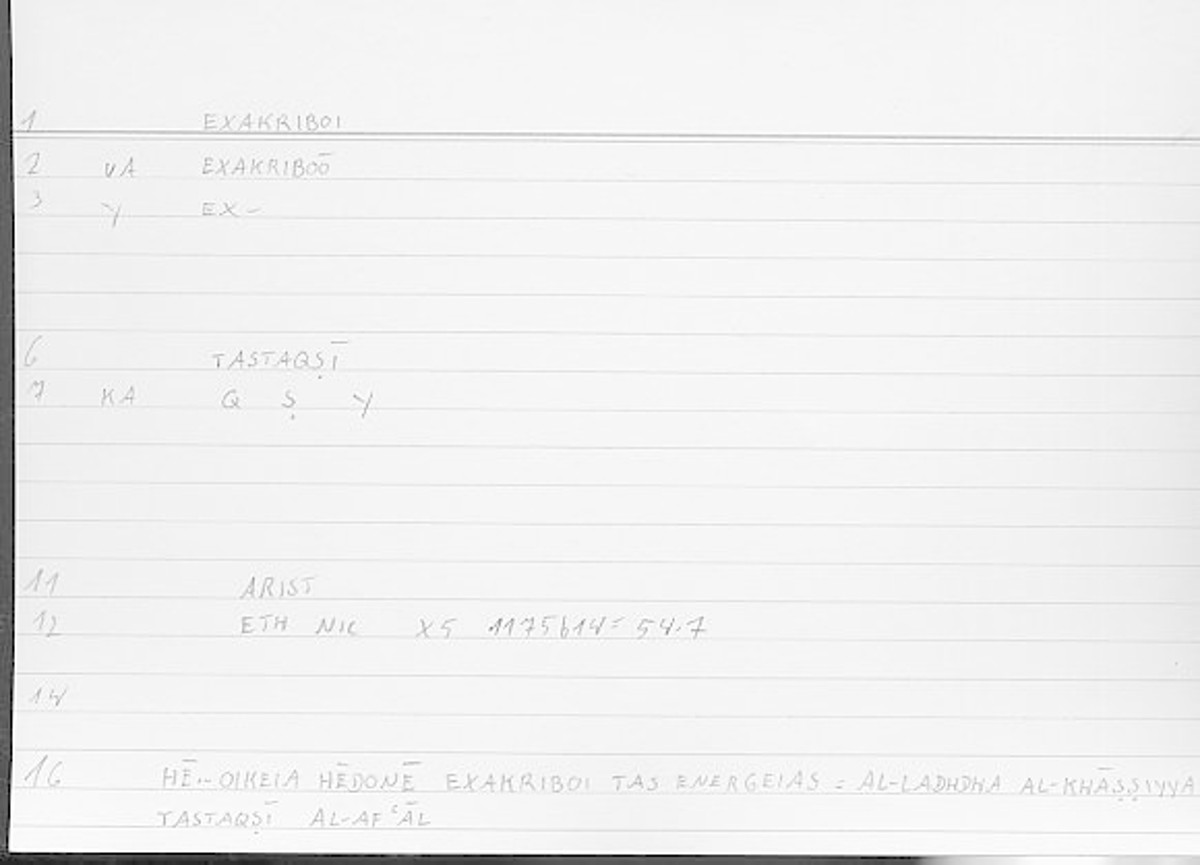 1 EXAKRIBOI
2 VA EXAKRIBOŌ
3 Y EX-
6 TASTAQṢĪ
7 KA Q Ṣ Y
11 ARIST
12 ETH NIC X5 1175b14= 54.7
14
16 HĒ.. OIKEIA HĒDONĒ EXAKRIBOI TAS ENERGEIAS = AL-LADHDHA AL-KHĀṢṢIYYA
TASTAQṢĪ AL-AFʿĀL